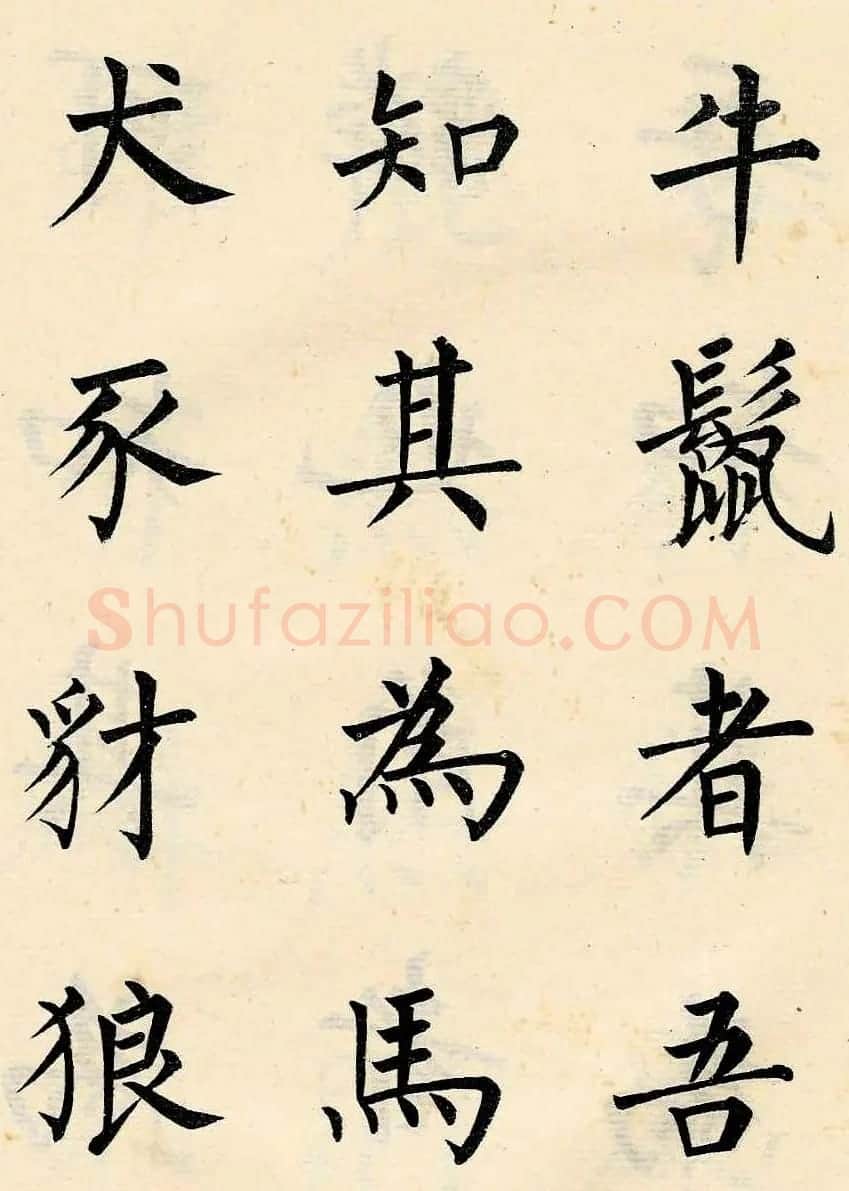 牛鬣者吾
知其為馬
犬豕豺狼
Shufaziliao.COM